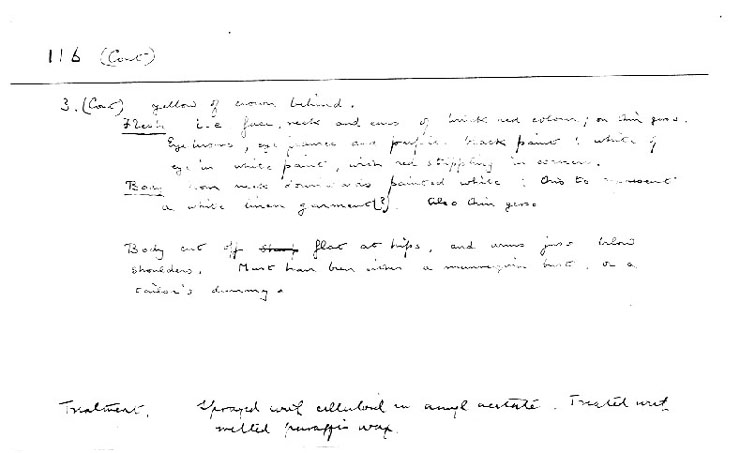 116 (Cont)
3. (Cont) yellow of crown behind.
Flesh i.e. face, neck and ears of brick red colour; on thin gesso.
Eyebrows, eye frames and pupils: black paint: white of
eye in white paint, with red stippling in corners.
Body from neck downwards painted white: this to represent
a white linen garment(?) Also thin gesso
Body cut off flat at hips, and arms just below
shoulders. Must have been either a mannequin bust, or a
tailor's dummy.
Treatment. Sprayed with celluloid in amyl acetate. Treated with
melted paraffin wax.